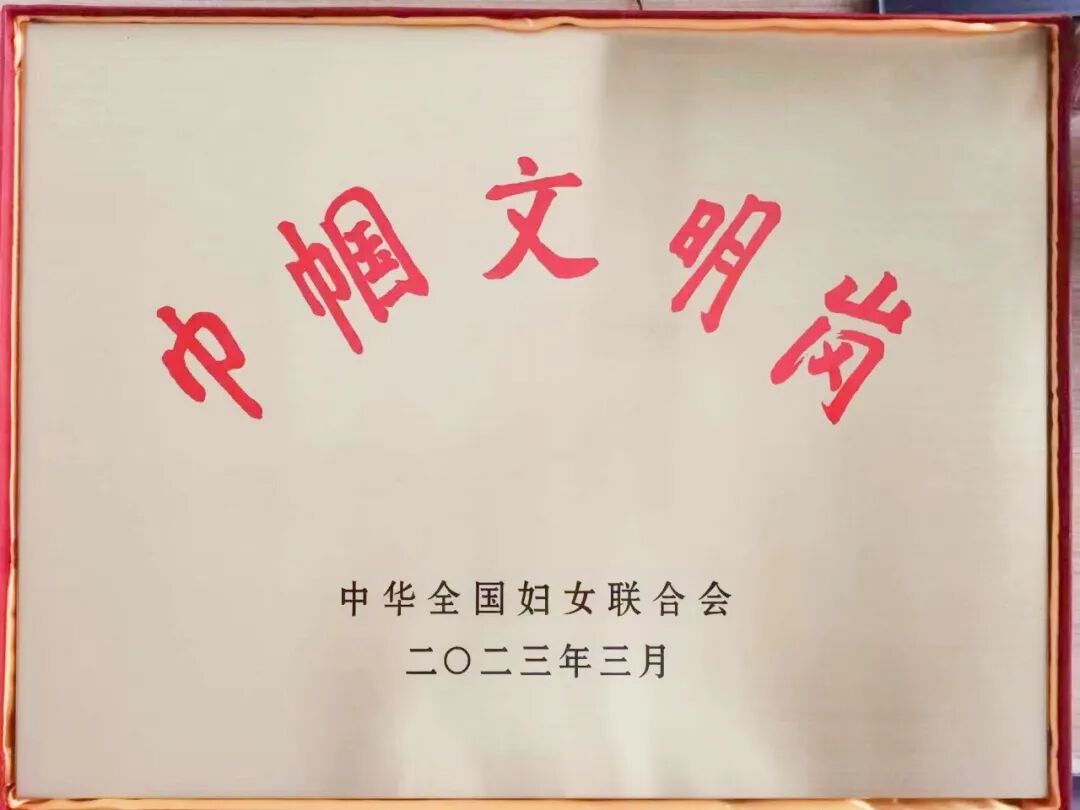 巾帼文明岗
中华全国妇女联合会
二〇二三年三月